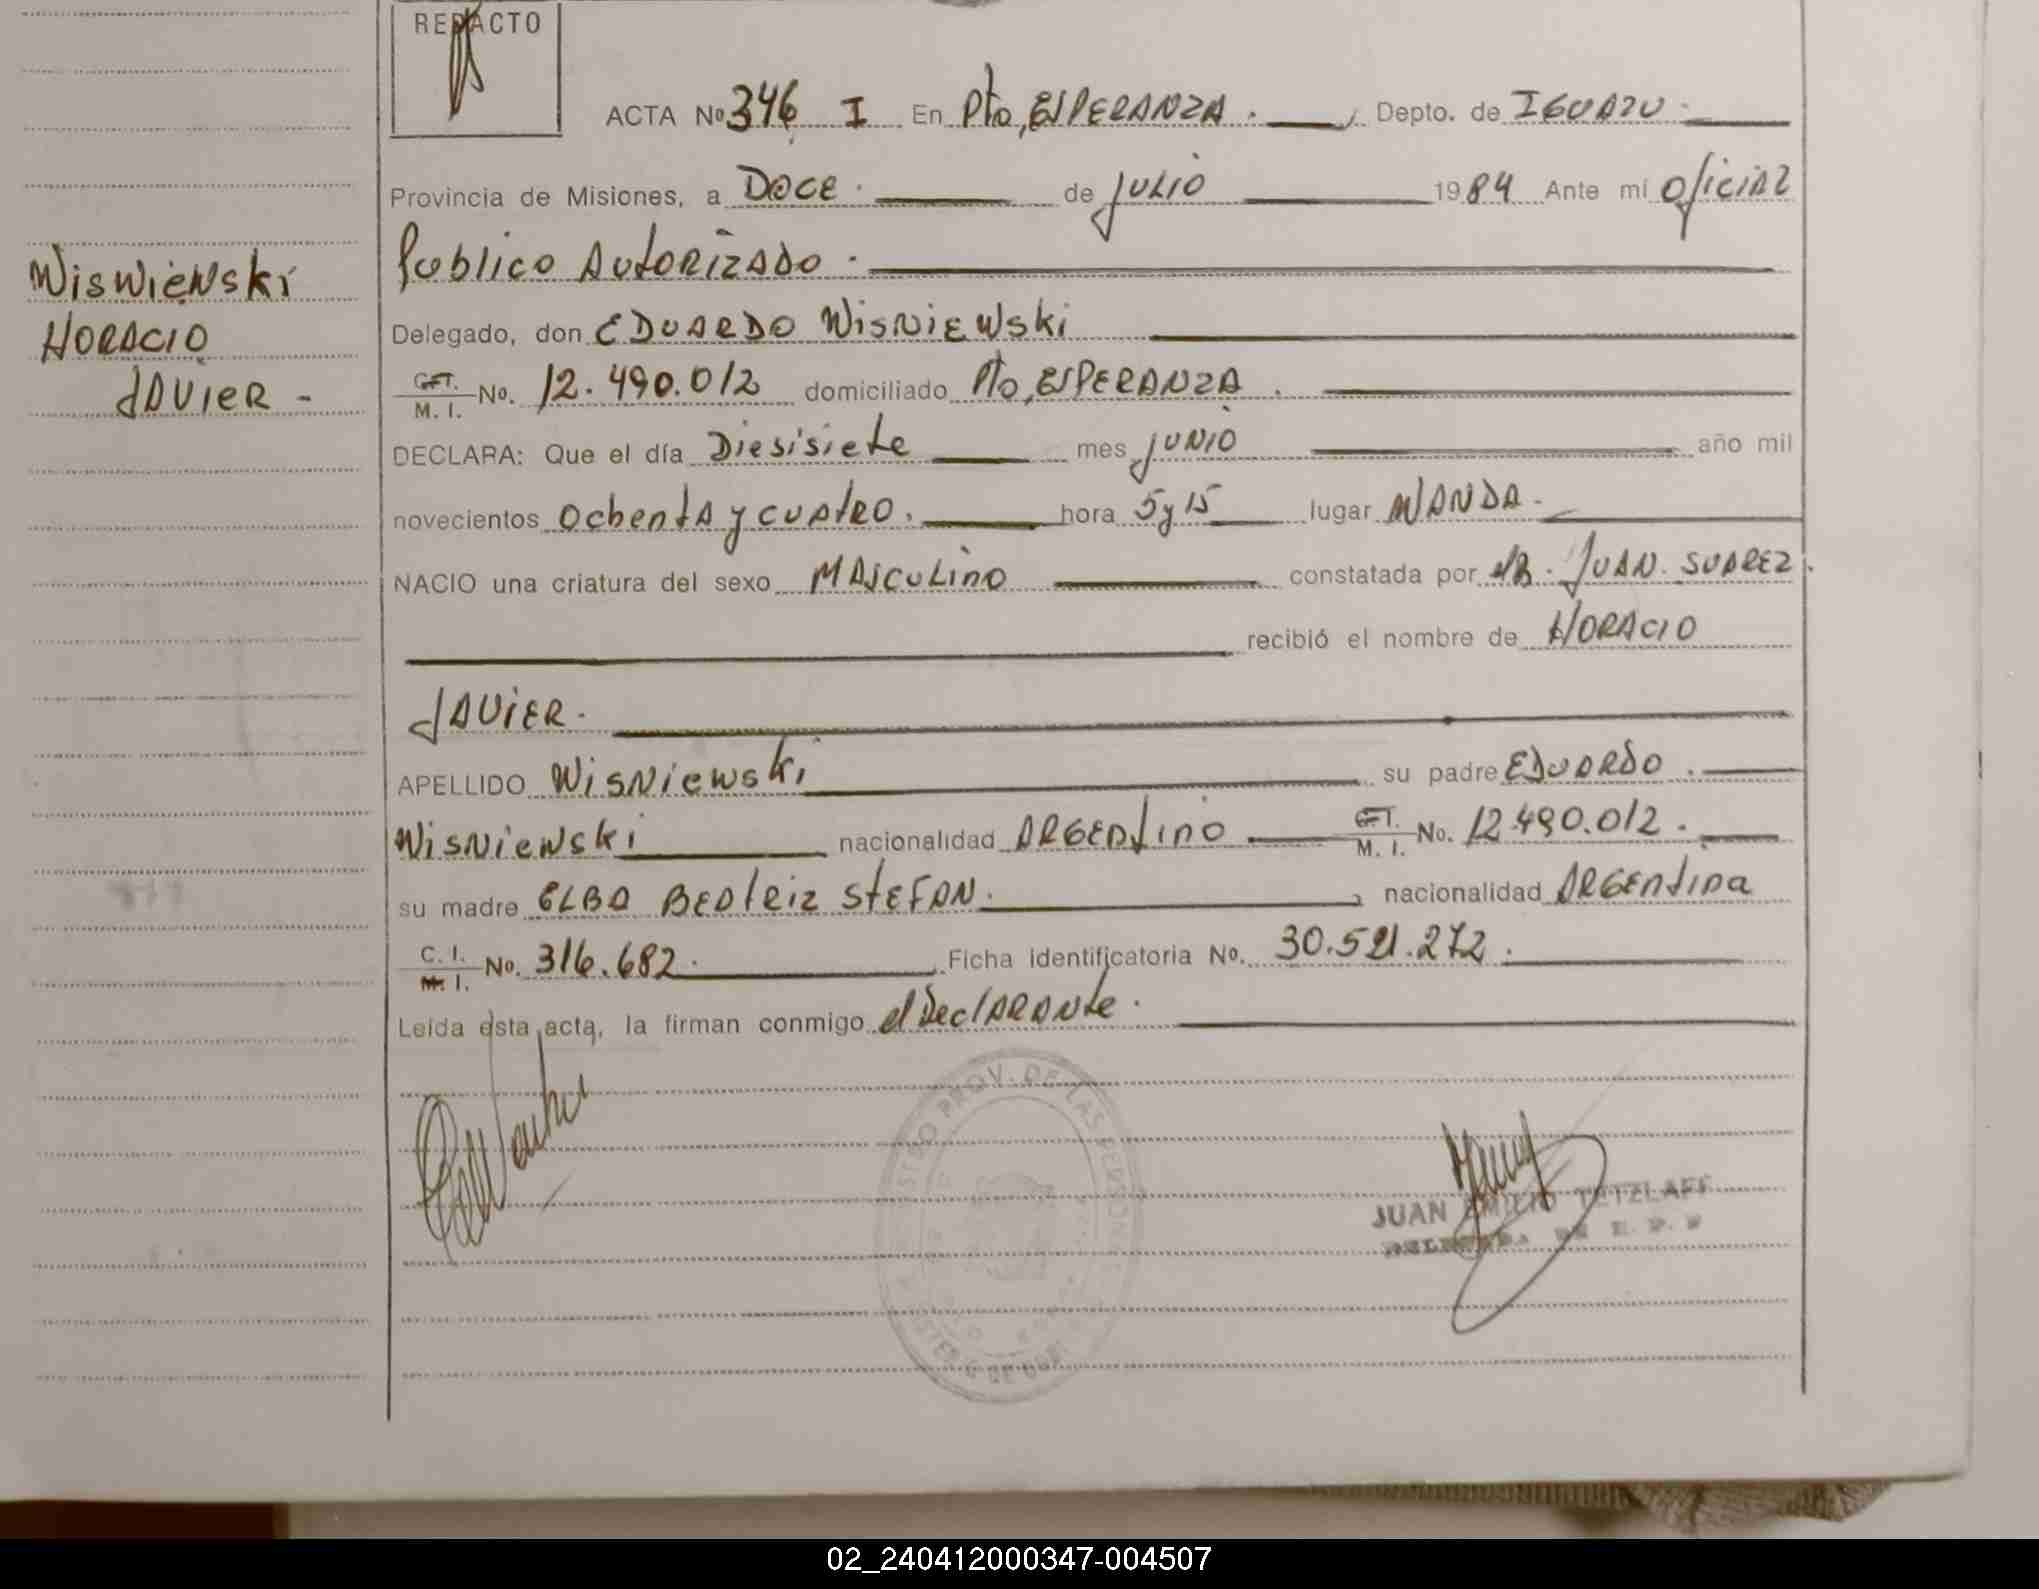 REDACTO
ACTA No 346 I En Pto, ESPERANZA. Depto. de IGUAZU.
Provincia de Misiones, a DOCE. de JULIO 1984 Ante mí Oficial
Publico Autorizado.
Wiswiewski
HORACIO
JAVIER -
Delegado, don EDUARDO Wisniewski
C.I. M. I. No. 12.490.012 domiciliado Pto, ESPERANZA.
DECLARA: Que el día Diesisiete mes JUNIO año mil
novecientos Ochenta y cuatro. hora 5 y 15 lugar WANDA.
NACIO una criatura del sexo MASCULINO constatada por DR. JUAN. SUAREZ.
recibió el nombre de HORACIO
JAVIER.
APELLIDO Wisniewski su padre EDUARDO.
Wisniewski nacionalidad ARGENTINO C.I. M. I. No. 12.490.012.
su madre ELBA BEATRIZ STEFAN. nacionalidad ARGENTINA
C. I. M. I. No. 316.682. Ficha identificatoria No. 30.521.272.
Leída esta acta, la firman conmigo el DeclARANte.
PROV. DE LAS PERSONAS
JUAN EMILIO TETZLAFF
02_240412000347-004507